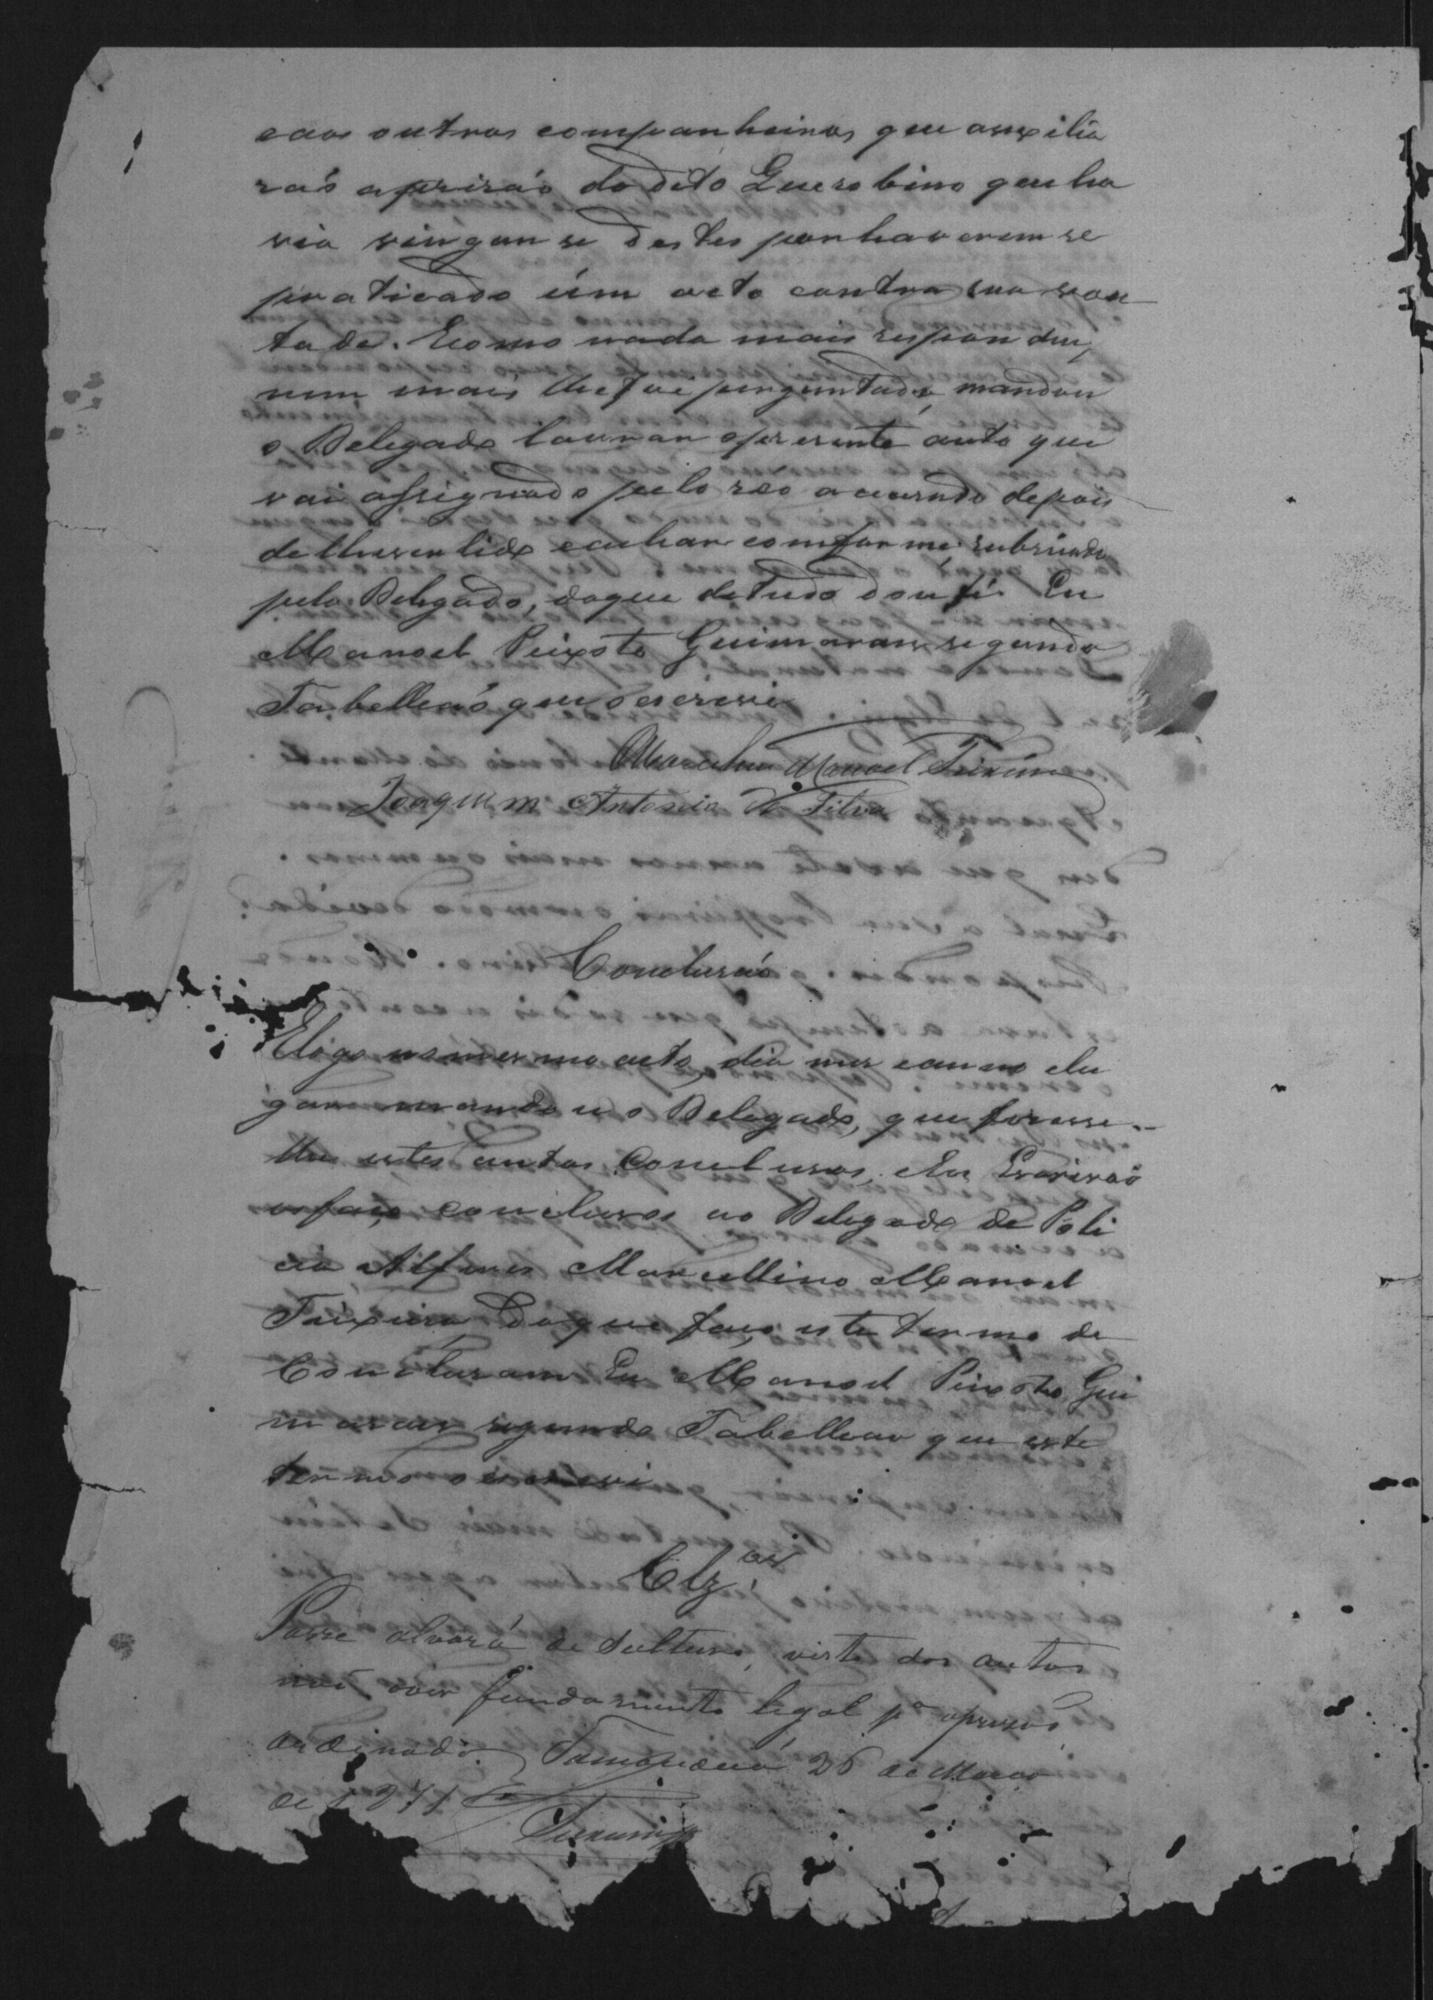 eaos outros companheiros que auxilia
raõ aprizaõ do dito Querobino que ha
via vingarse destes por haveremse
praticado úm acto contra sua von
tade. E como nada mais respondeu,
nem mais lhe foi perguntado, mandou
o Delegado lavrar o presente auto que
vai assignado pelo reo accusado depois
de lhe ser lido e achar comforme rubricado
pelo Delegado, do que de tudo dou fé. Eu
Manoel Peixoto Guimaraes segundo
Tabelleaõ que o escrevi
Marcelino Manoel Teixeira
Joaquim Antonio da Silva
Concluzaõ
E logo no mesmo acto, dia mes e anno e lu
gar mandou o Delegado, que fizesse
lhe estes autos concluzos, e Eu Escrivaõ
os faço concluzos ao Delegado de Poli
cia Alferes Marcellino Manoel
Teixeira do que faço este termo de
Concluzam Eu Manoel Peixoto Gui
maraes segundo Tabelleao que este
termo o escrevi
Clz.os
Passe alvará de soltura, visto dos autos
não haver fundamento legal pª aprizaõ
ordenada. Tamanduá 26 de Março
de 1871
Teixeira